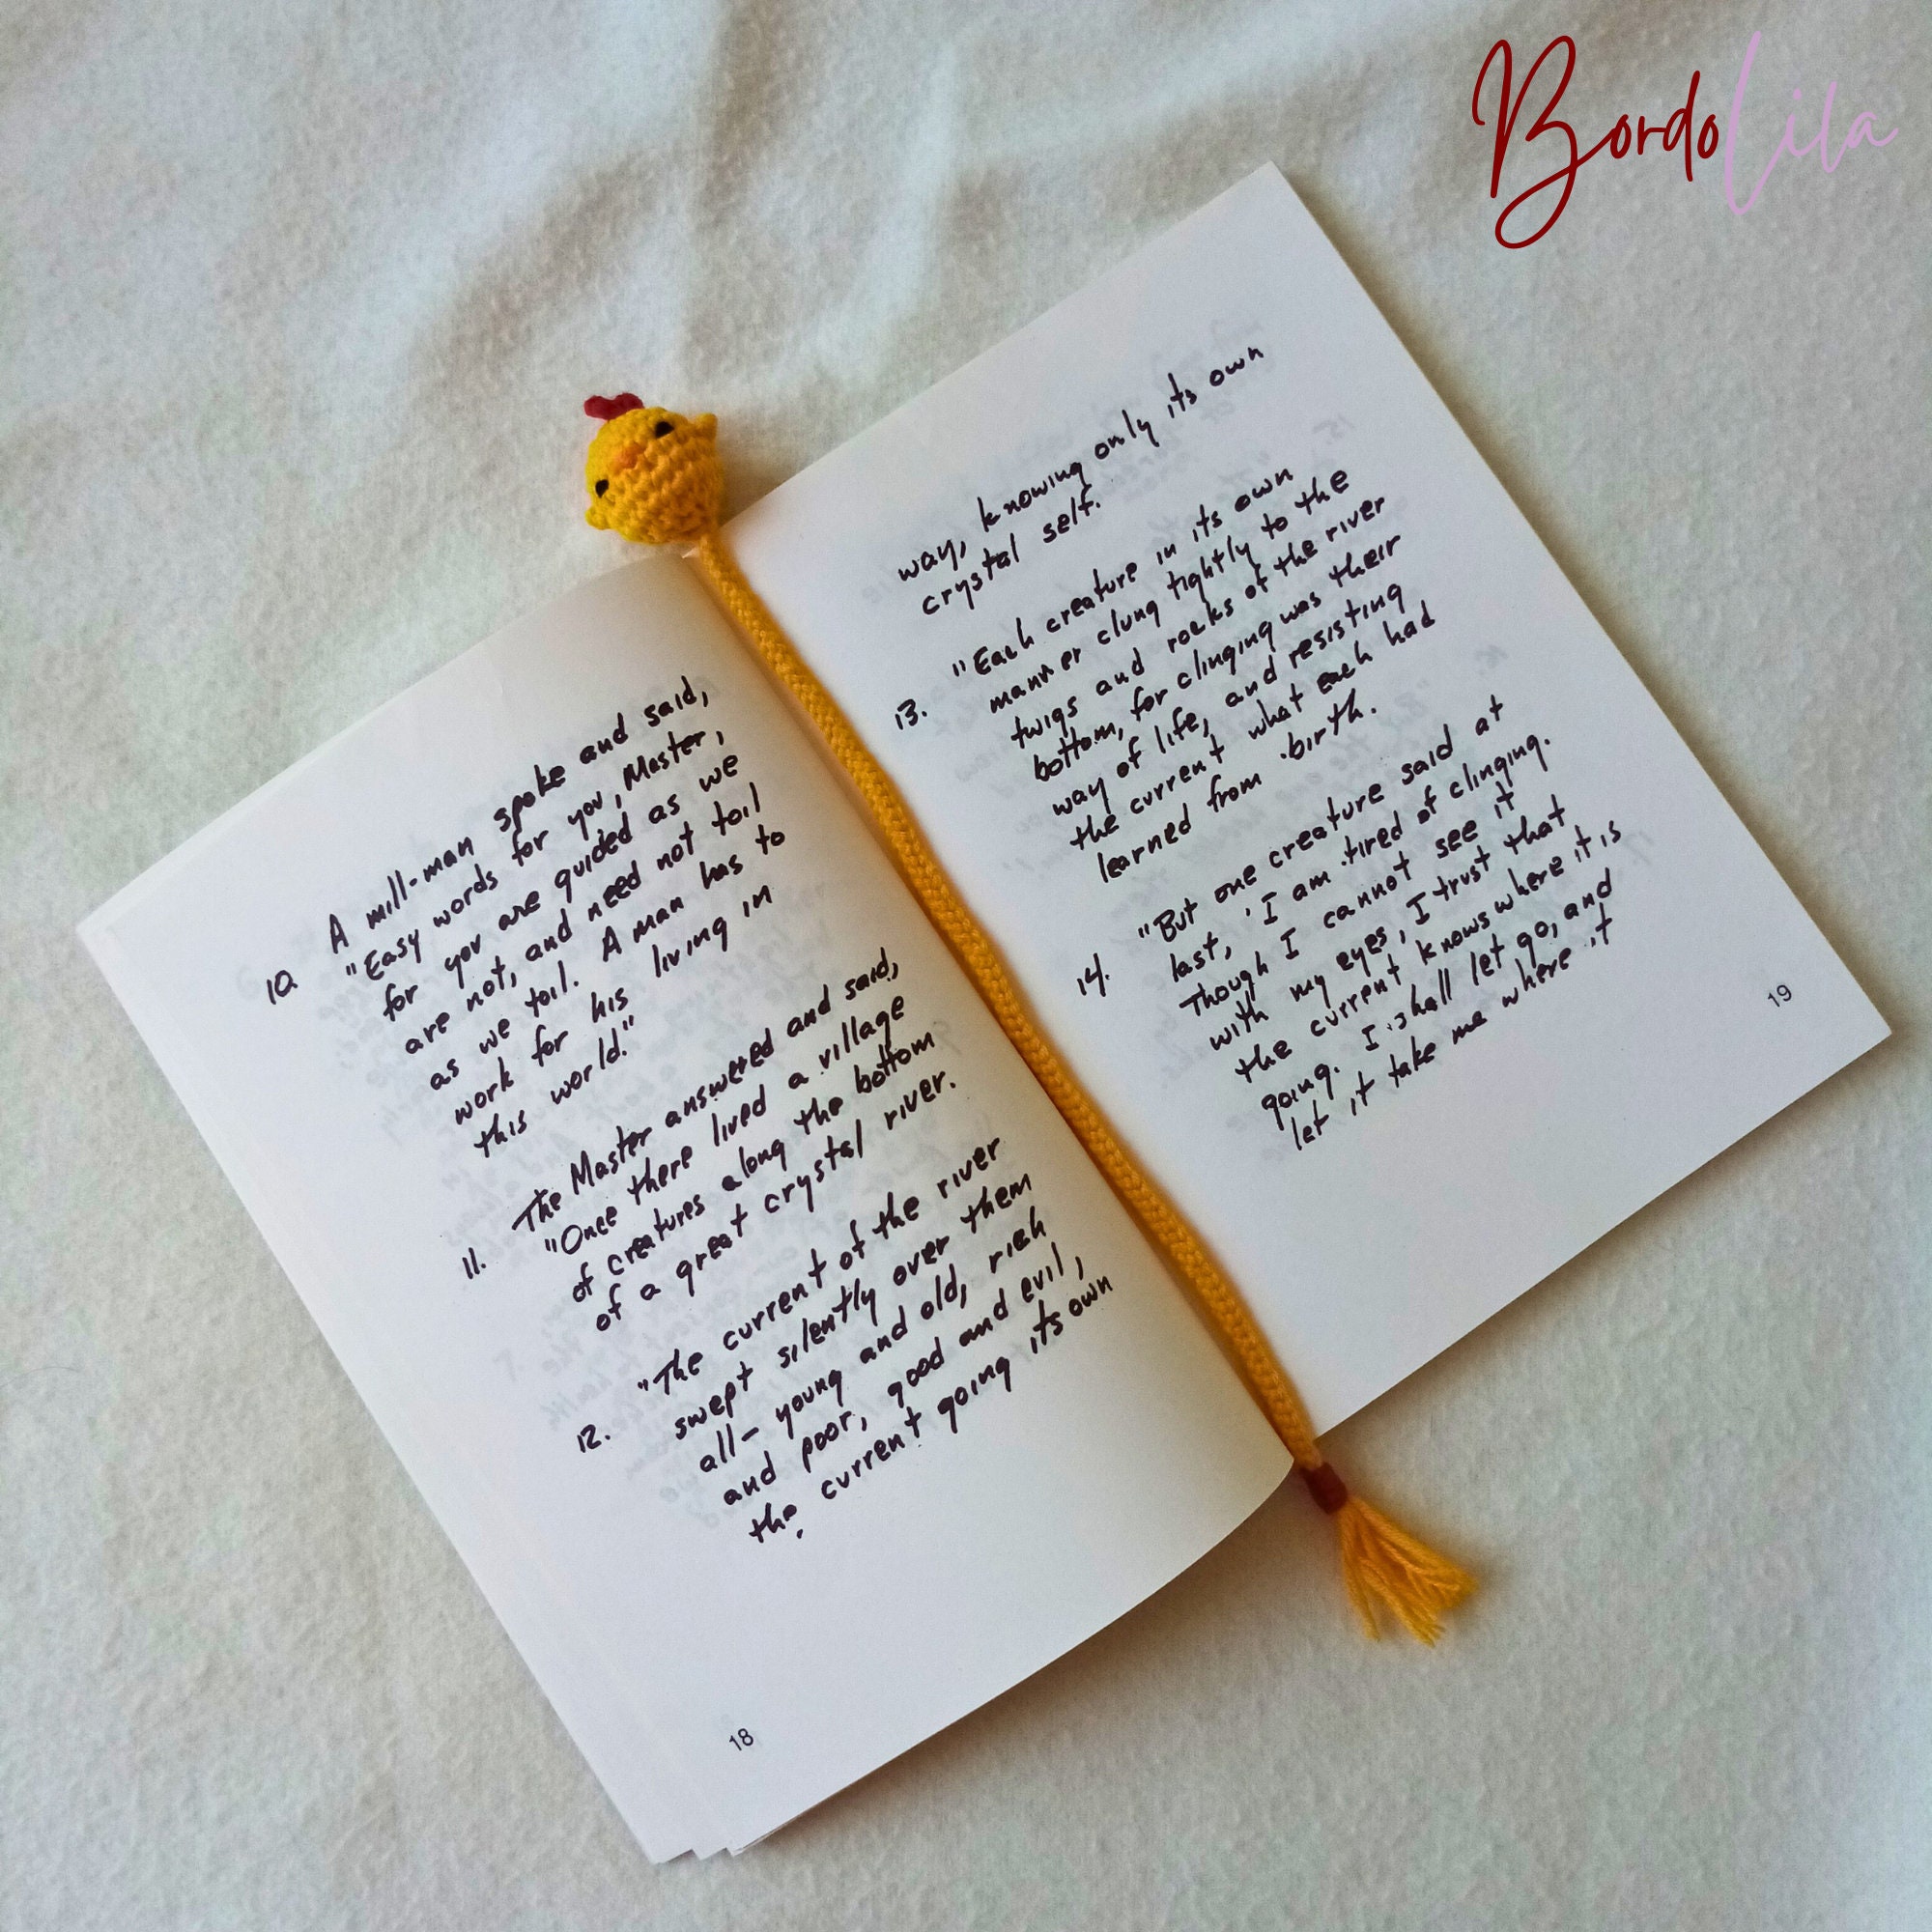 BordoLila
10. A mill-man spoke and said,
"Easy words for you, Master,
for you are guided as we
are not, and need not toil
as we toil. A man has to
work for his living in
this world."
11. The Master answered and said,
"Once there lived a village
of creatures along the bottom
of a great crystal river.
12. "The current of the river
swept silently over them
all- young and old, rich
and poor, good and evil,
the current going its own
18
way, knowing only its own
crystal self.
13. "Each creature in its own
manner clung tightly to the
twigs and rocks of the river
bottom, for clinging was their
way of life, and resisting
the current what each had
learned from birth.
14. "But one creature said at
last, 'I am tired of clinging.
Though I cannot see it
with my eyes, I trust that
the current knows where it is
going. I shall let go, and
let it take me where it
19